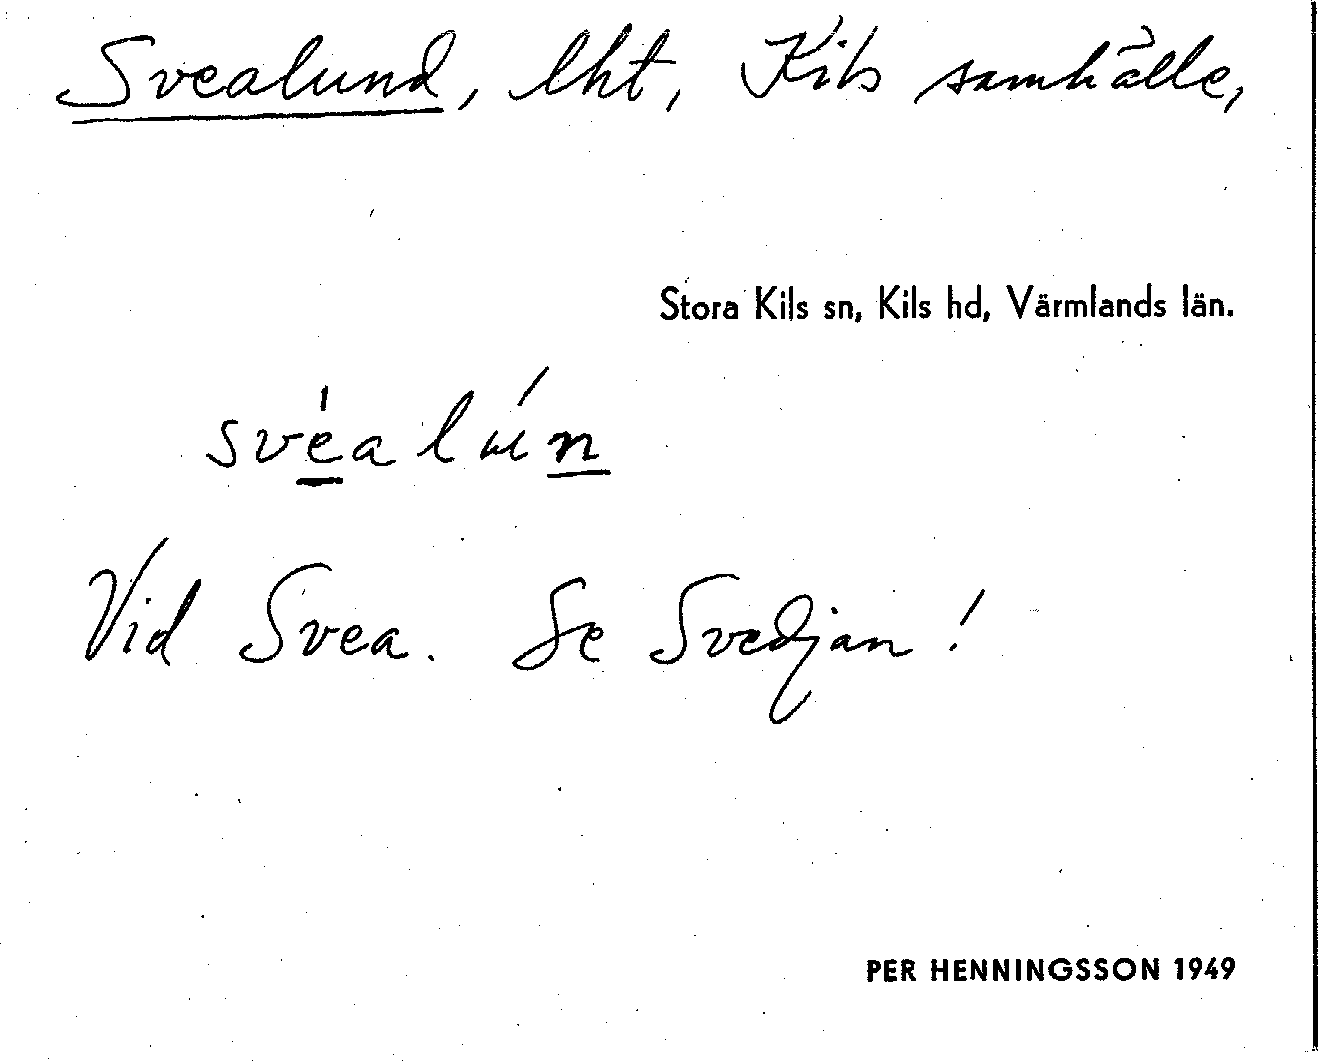 Svealund, lht, Kils samhälle,
Stora Kils sn, Kils hd, Värmlands län.
svéalún
Vid Svea. Se Svedjan!
PER HENNINGSSON 1949